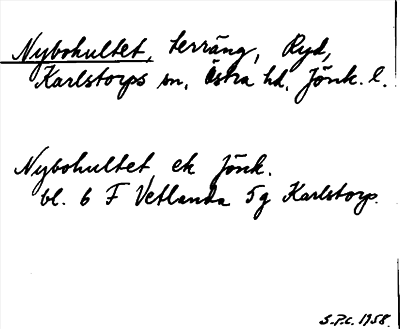 Nybohultet, terräng, Ryd,
Karlstorps sn, Östra hd, Jönk. l.
Nybohultet ek Jönk.
bl. 6 F Vetlanda 5g Karlstorp.
S.P.C. 1958.